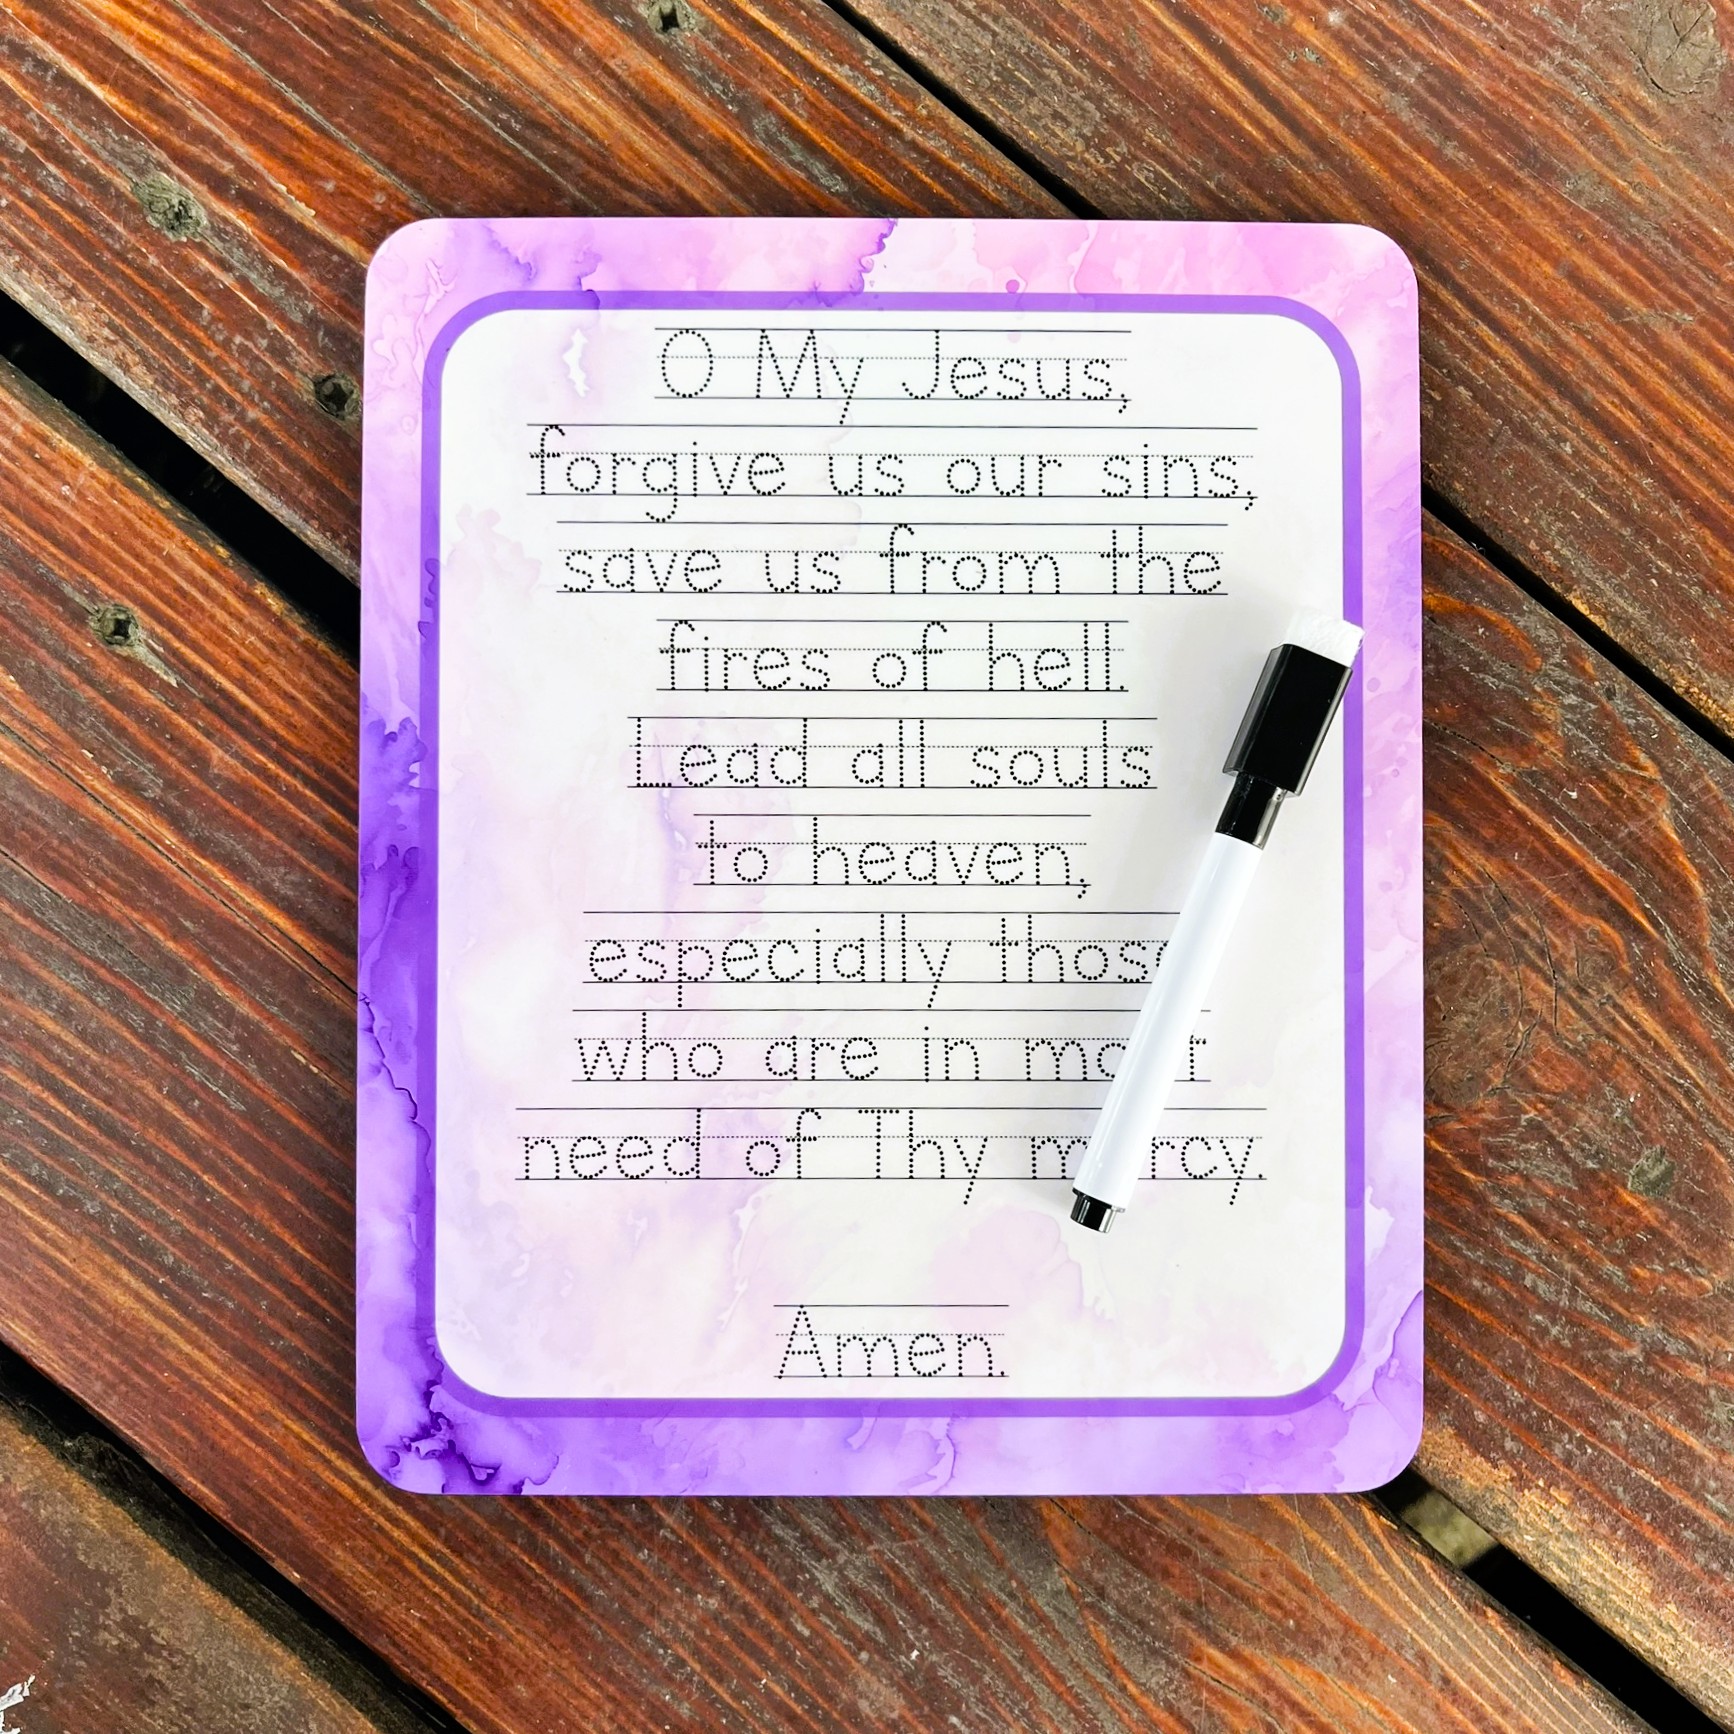 O My Jesus,
forgive us our sins,
save us from the
fires of hell.
Lead all souls
to heaven,
especially those
who are in most
need of Thy mercy.
Amen.